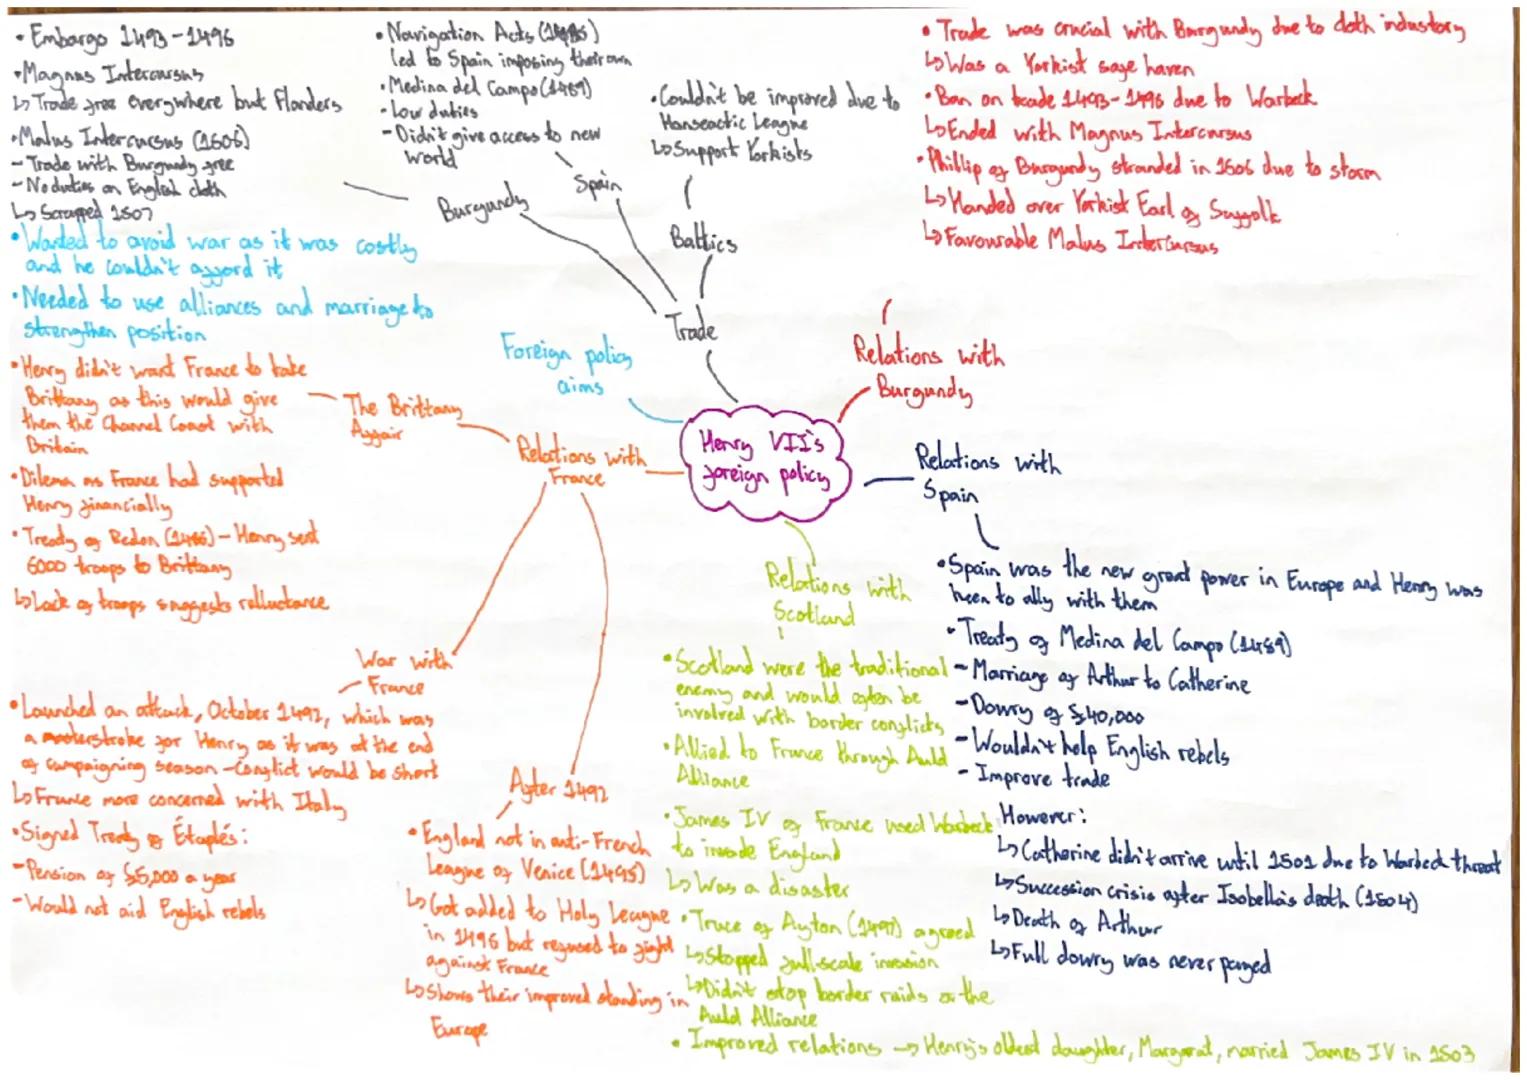 • Embargo 1493-1496
• Magnus Intercursus
↳ Trade free everywhere but Flanders
• Malus Intercursus (1506)
- Trade with Burgundy free
- No duties on English cloth
↳ Scrapped 1507
Burgundy
• Navigation Acts (1485)
led to Spain imposing their own
• Medina del Campo (1489)
- Low duties
- Didn't give access to new
world
Spain
• Couldn't be improved due to
Hanseactic League
↳ Support Yorkists
Baltics
Trade
• Trade was crucial with Burgundy due to cloth industory
↳ Was a Yorkist safe haven
• Ban on trade 1493-1496 due to Warbeck
↳ Ended with Magnus Intercursus
• Phillip of Burgundy stranded in 1506 due to storm
↳ Handed over Yorkist Earl of Suffolk
↳ Favourable Malus Intercursus
Relations with
Burgundy
• Wanted to avoid war as it was costly
and he couldn't afford it
• Needed to use alliances and marriage to
strengthen position
Foreign policy
aims
Henry VII's
foreign policy
• Henry didn't want France to take
Brittany as this would give
them the Channel Coast with
Britain
• Dilema as France had supported
Henry financially
• Treaty of Redon (1486) - Henry sent
6000 troops to Brittany
↳ Lack of troops suggests relluctance
The Brittany
Affair
Relations with
France
War with
France
• Launched an attack, October 1492, which was
a masterstroke for Henry as it was at the end
of campaigning season - Conflict would be short
↳ France more concerned with Italy
• Signed Treaty of Étaplés:
- Pension of £5,000 a year
- Would not aid English rebels
After 1492
• England not in anti-French
League of Venice (1495)
↳ Got added to Holy League
in 1496 but refused to fight
against France
↳ Shows their improved standing in
Europe
Relations with
Scotland
• Scotland were the traditional
enemy and would often be
involved with border conflicts
• Allied to France through Auld
Alliance
• James IV of France used Warbeck
to invade England
↳ Was a disaster
• Truce of Ayton (1497) agreed
↳ Stopped full-scale invasion
↳ Didn't stop border raids or the
Auld Alliance
• Improved relations → Henry's oldest daughter, Margarat, married James IV in 1503
Relations with
Spain
• Spain was the new great power in Europe and Henry was
keen to ally with them
• Treaty of Medina del Campo (1489)
- Marriage of Arthur to Catherine
- Dowry of £40,000
- Wouldn't help English rebels
- Improve trade
However:
↳ Catherine didn't arrive until 1501 due to Warbeck threat
↳ Succession crisis after Isobella's death (1504)
↳ Death of Arthur
↳ Full dowry was never payed